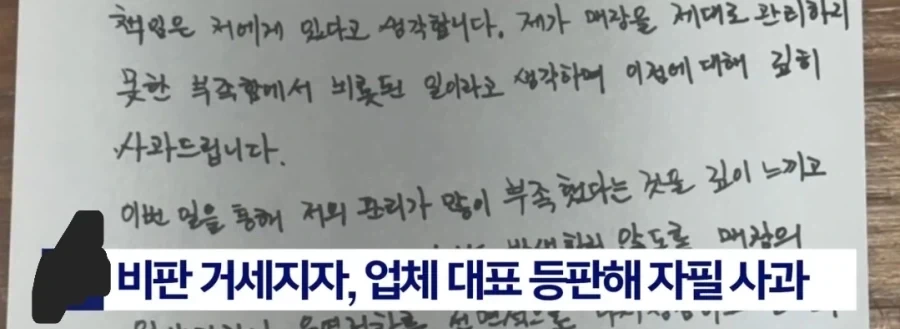 책임은 저에게 있다고 생각합니다. 제가 매장을 제대로 관리하지
못한 부족함에서 비롯된 일이라고 생각하며 이점에 대해 깊히
사과드립니다.
이번 일을 통해 저의 관리가 많이 부족했다는 것을 깊이 느끼고
않도록 매장의
비판 거세지자, 업체 대표 등판해 자필 사과